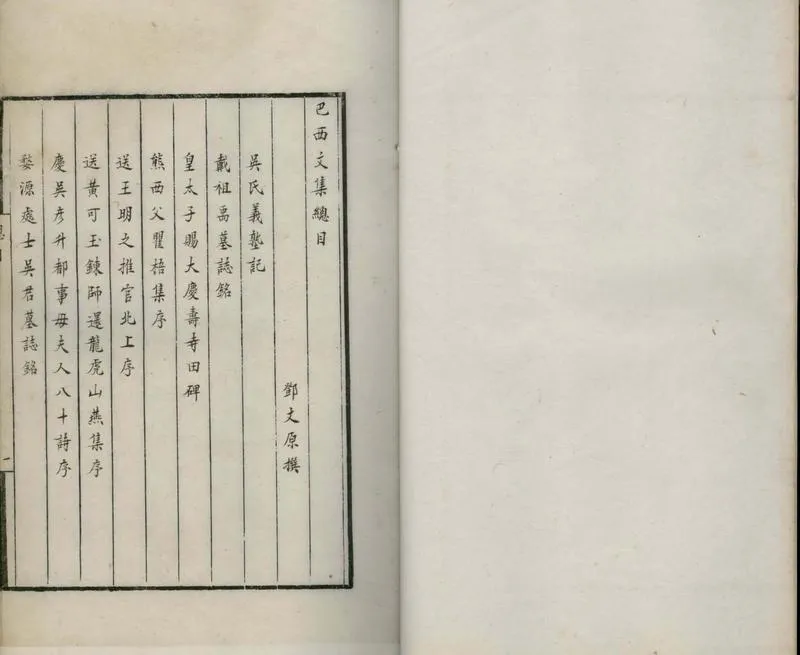 巴西文集總目
鄧文原撰
吳氏義塾記
戴祖禹墓誌銘
皇太子賜大慶壽寺田碑
熊西父瞿梧集序
送王明之推官北上序
送黃可玉鍊師還龍虎山燕集序
慶吳彥升都事母夫人八十詩序
婺源處士吳君墓誌銘